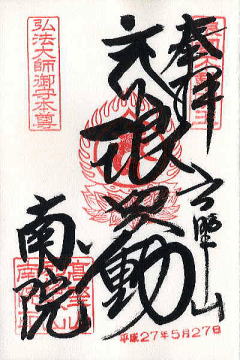 奉拝
高野山
浪切不動
南院
弘法大師御守本尊
平成27年5月27日